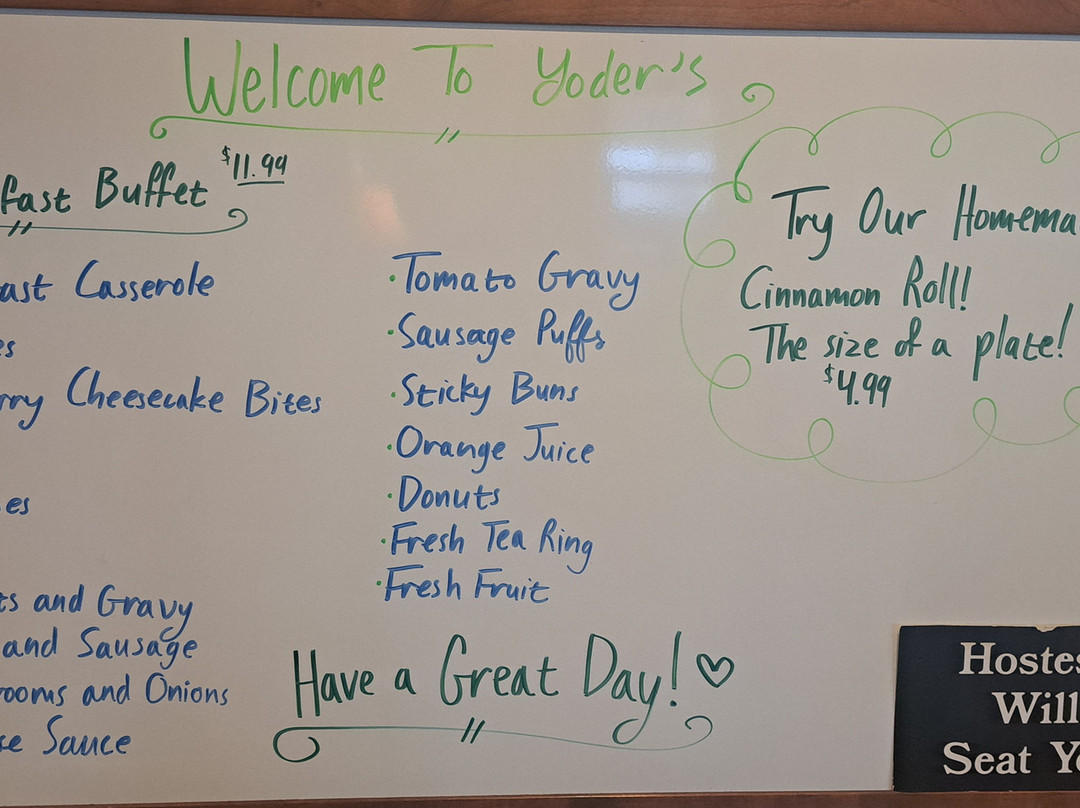 Welcome To Yoder's
fast Buffet $11.99
ast Casserole
es
rry Cheesecake Bites
es
ts and Gravy
and Sausage
rooms and Onions
se Sauce
·Tomato Gravy
·Sausage Puffs
·Sticky Buns
·Orange Juice
·Donuts
·Fresh Tea Ring
·Fresh Fruit
Have a Great Day! ♡
Try Our Homema
Cinnamon Roll!
The size of a plate!
$4.99
Hostes
Will
Seat Yo